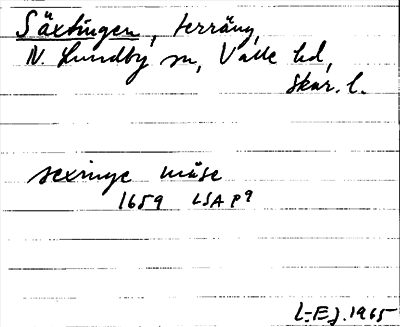 Säxtingen, terräng,
N. Lundby sn, Valle hd,
Skar. l.
sexinge måse
1659 LSA P9
L-E J. 1965